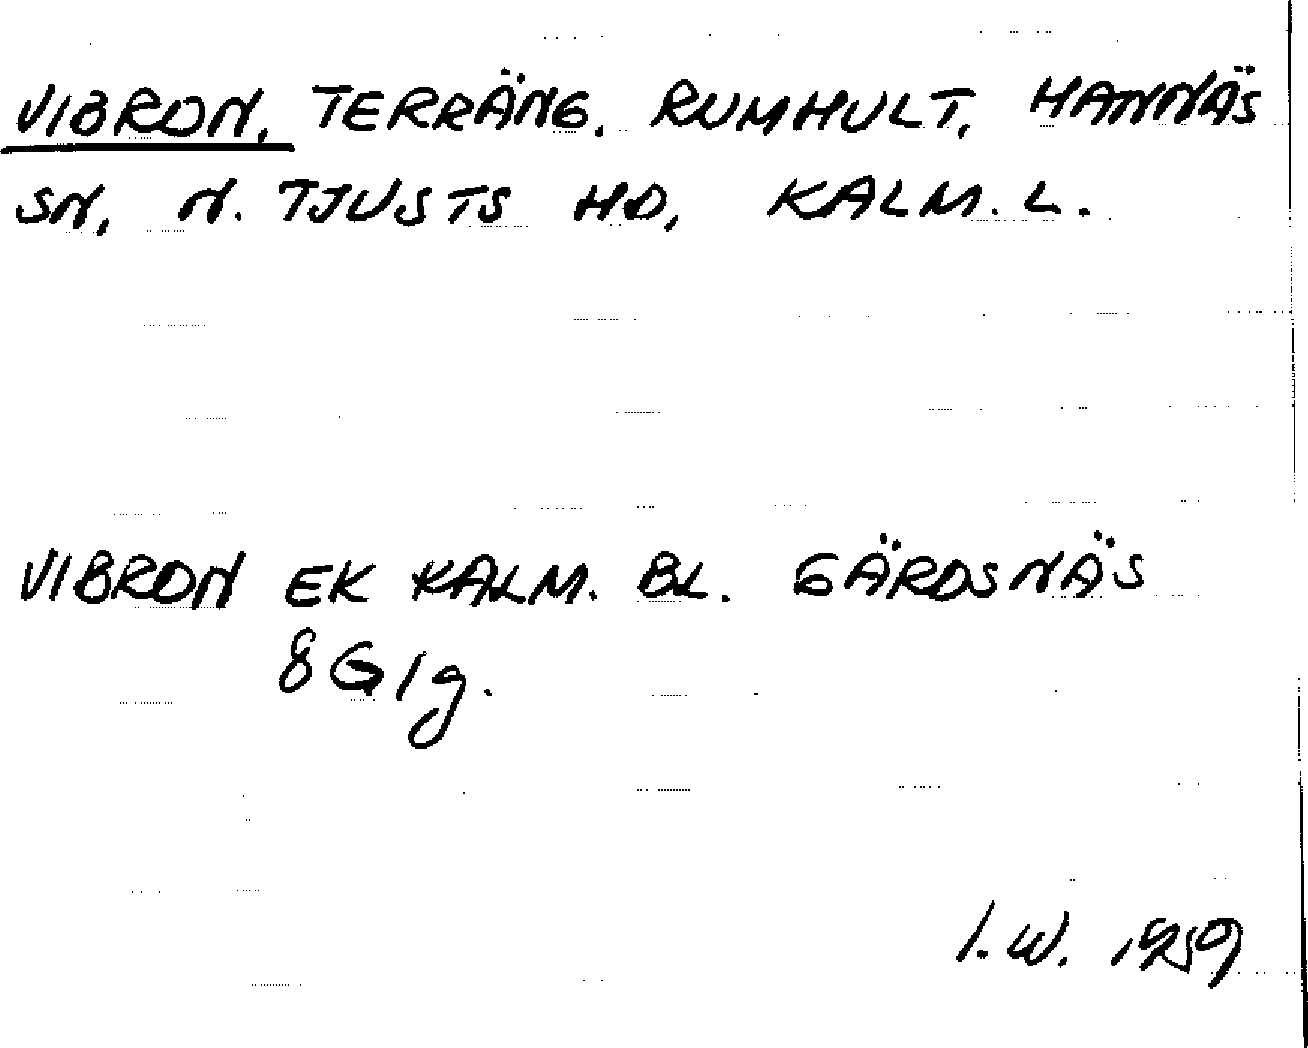 VIBRON, TERRÄNG. RUMHULT, HANNÄS
SN, N. TJUSTS HD, KALM. L.
VIBRON EK KALM. BL. GÄRDSNÄS
8G1g.
I.W. 1959